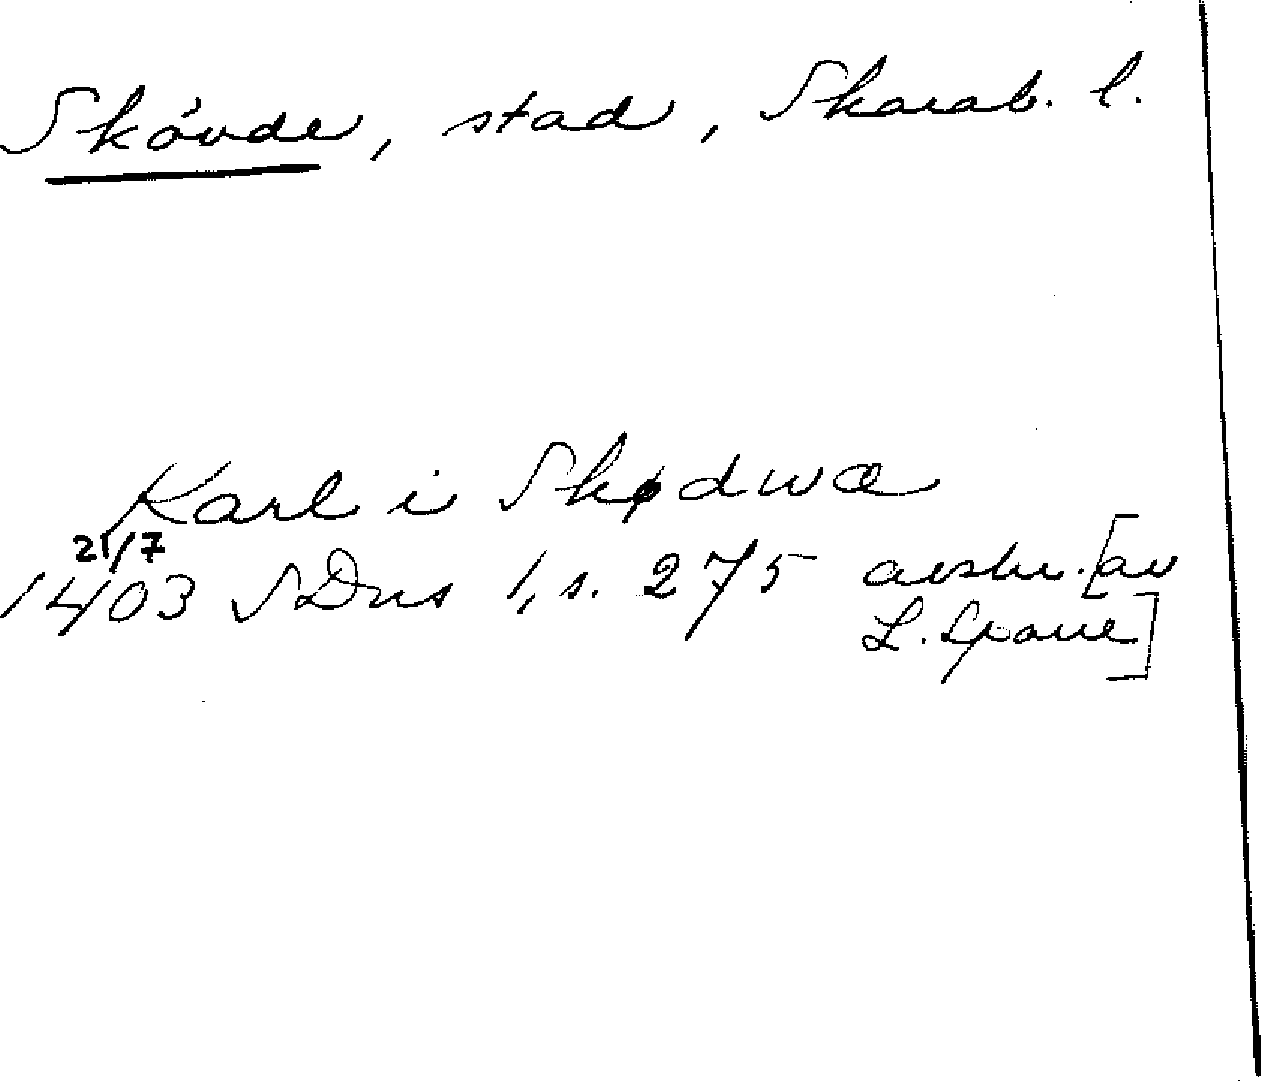 Skövde, stad, Skarab. l.
Karl i Skødwæ
21/7
1403 SDns 1, s. 275 avskr. [av
L. Spaue]